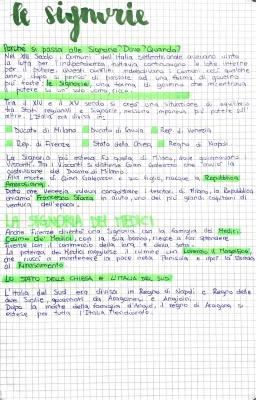 le signorie
Perché si passa alle Signorie? Dove? Quando?
Nel XIV secolo, i Comuni dell'Italia settentrionale avevano vinto
la lotta per l'indipendenza, tuttavia continuavano le lotte interne
per il potere, diventi conflitti indebolivano i Comuni così qualche
anno dopo decisero di passare ad una forma di governo
più forte: le Signorie, una forma di governo che incentrava
il potere su un solo uomo, il
Tra il XIV e il XV secolo si creò una situazione di equilibrio
tra Stati regionali e Signorie, nessuno imperava più potere sull'
altro. L'Italia era divisa in:
Ducato di Milano Ducato di Savoia Rep. di Venezia
Rep. di Firenze Stato della Chiesa Regno di Napoli
La Signoria più estesa fu quella di Milano, dove governarono i
Visconti. Tra i Visconti si distinse Gian Galeazzo che avviò la
costruzione del Duomo di Milano.
Alla morte di Gian Galeazzo e suo figlio, nacque la Repubblica
Ambrosiana.
Dato che Venezia voleva conquistare i territori di Milano, la Repubblica
chiamò Francesco Sforza in aiuto, uno dei più grandi capitani di
ventura dell'epoca.
LA SIGNORIA DEI MEDICI
Anche Firenze diventò una Signoria con la famiglia dei Medici.
Cosimo de' Medici, con la sua banca, riuscì a far splendere
Firenze con il commercio della lana e della seta.
La potenza dei Medici raggiunse il culmine con Lorenzo il Magnifico,
che riuscì a mantenere la pace nella Penisola e aprì la strada
al Rinascimento.
LO STATO DELLA CHIESA E L'ITALIA DEL SUD
L'Italia del Sud era divisa in Regno di Napoli e Regno delle
due Sicilie, governati da Aragonesi e Angioini.
Dopo la morte della famiglia d'Angiò, il regno di Aragona si
estese per tutta l'Italia Meridionale.